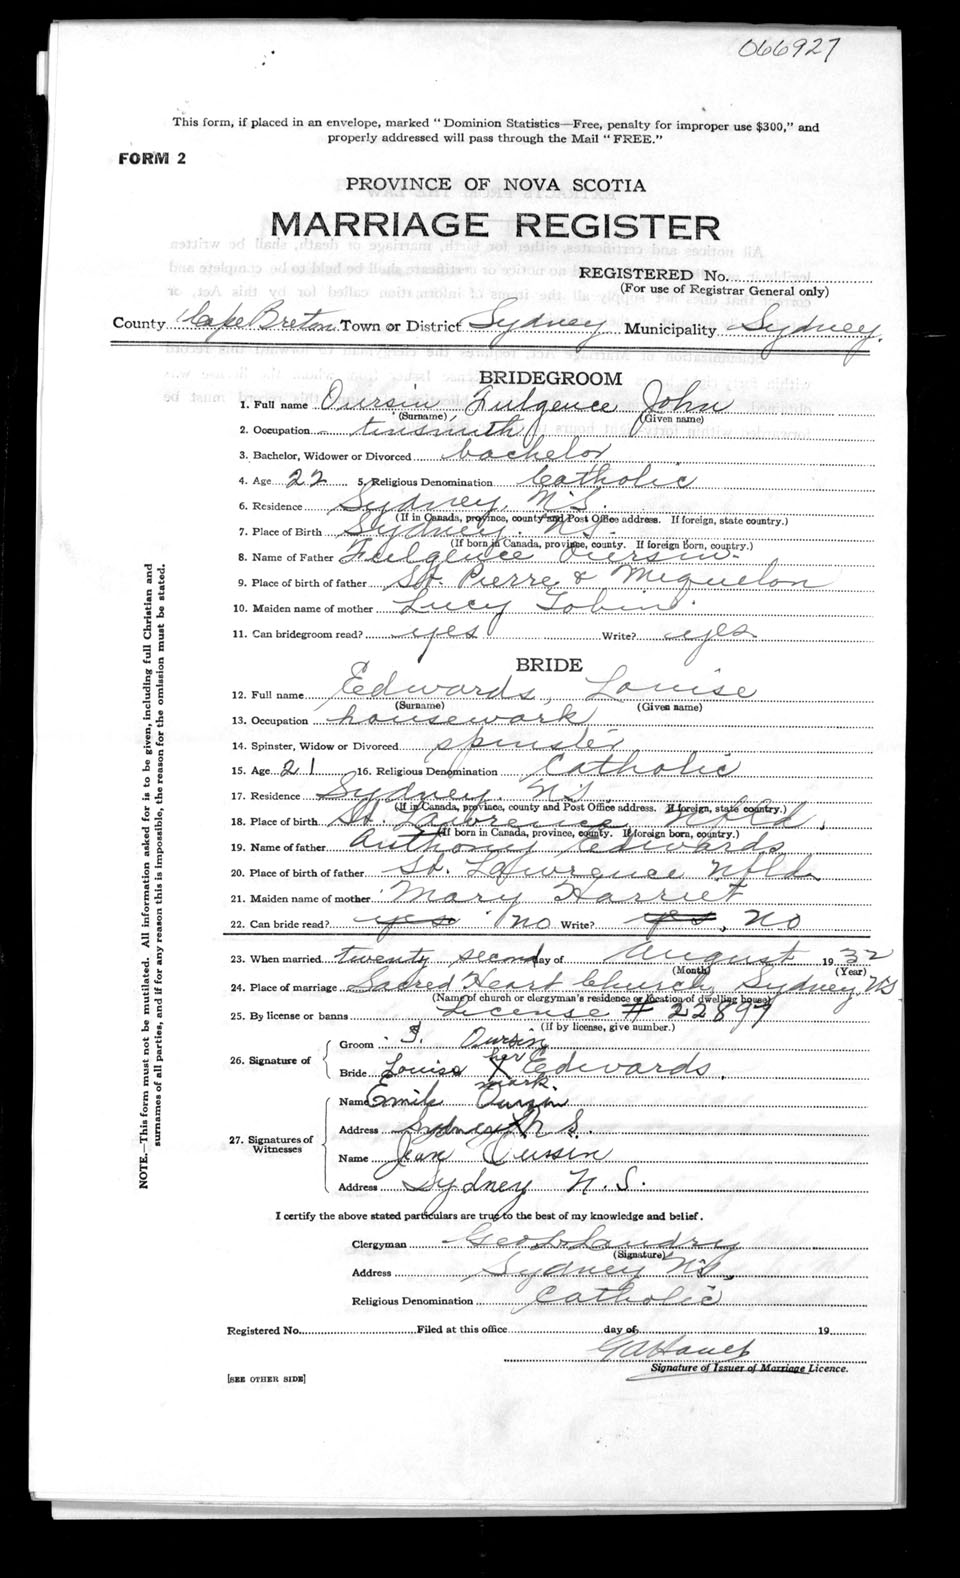 066927
This form, if placed in an envelope, marked "Dominion Statistics—Free, penalty for improper use $300," and
properly addressed will pass through the Mail "FREE."
FORM 2
PROVINCE OF NOVA SCOTIA
MARRIAGE REGISTER
REGISTERED No.
(For use of Registrar General only)
County Cape Breton Town or District Sydney Municipality Sydney.
BRIDEGROOM
1. Full name Oursin, Fulgence John
(Surname) (Given name)
2. Occupation tinsmith
3. Bachelor, Widower or Divorced bachelor
4. Age 22 5. Religious Denomination Catholic
6. Residence Sydney, N.S.
(If in Canada, province, county and Post Office address. If foreign, state country.)
7. Place of Birth Sydney. N.S.
(If born in Canada, province, county. If foreign born, country.)
8. Name of Father Fulgence Oursin.
9. Place of birth of father St. Pierre & Miquelon
10. Maiden name of mother Lucy Tobin.
11. Can bridegroom read? yes Write? yes
BRIDE
12. Full name Edwards, Louise
(Surname) (Given name)
13. Occupation housework
14. Spinster, Widow or Divorced spinster
15. Age 21 16. Religious Denomination Catholic
17. Residence Sydney. N.S
(If in Canada, province, county and Post Office address. If foreign, state country.)
18. Place of birth St. Lawrence Nfld,
(If born in Canada, province, county. If foreign born, country.)
19. Name of father Anthony Edwards
20. Place of birth of father St. Lawrence Nfld.
21. Maiden name of mother Mary Harriet
22. Can bride read? yes no Write? yes, no
23. When married twenty second day of August 1932
(Month) (Year)
24. Place of marriage Sacred Heart Church, Sydney, N.S
(Name of church or clergyman's residence or location of dwelling house)
25. By license or banns License # 22897
(If by license, give number.)
26. Signature of
Groom Oursin
her
Bride Louise X Edwards.
mark.
27. Signatures of Witnesses
Name Emile Oursin
Address Sydney N S.
Name Jean Oursin
Address Sydney N. S.
I certify the above stated particulars are true to the best of my knowledge and belief.
Clergyman Geo. L. Landry
(Signature)
Address Sydney N.S,
Religious Denomination Catholic
Registered No. Filed at this office day of 19
Signature of Issuer of Marriage Licence.
[SEE OTHER SIDE]
NOTE.—This form must not be mutilated. All information asked for is to be given, including full Christian and
surnames of all parties, and if for any reason this is impossible, the reason for the omission must be stated.